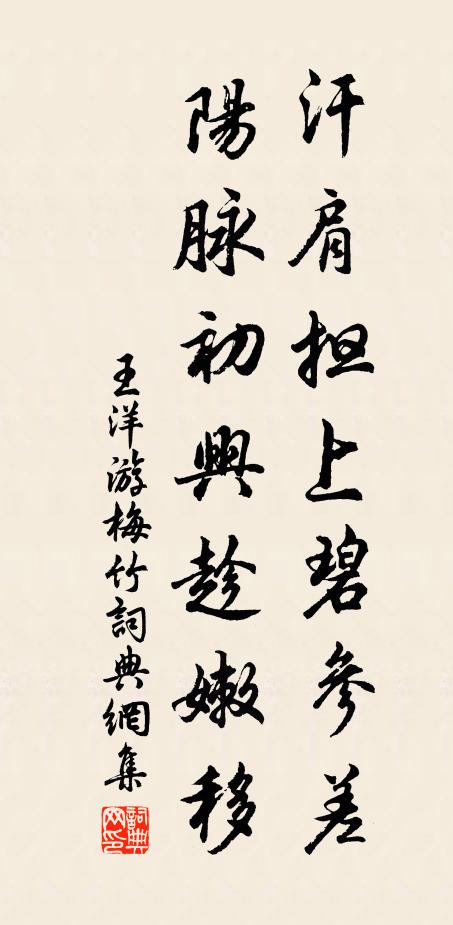 汗肩担上碧參差
陽脉初興趁嫩移
王洋游梅竹詞典網集
詞典網印